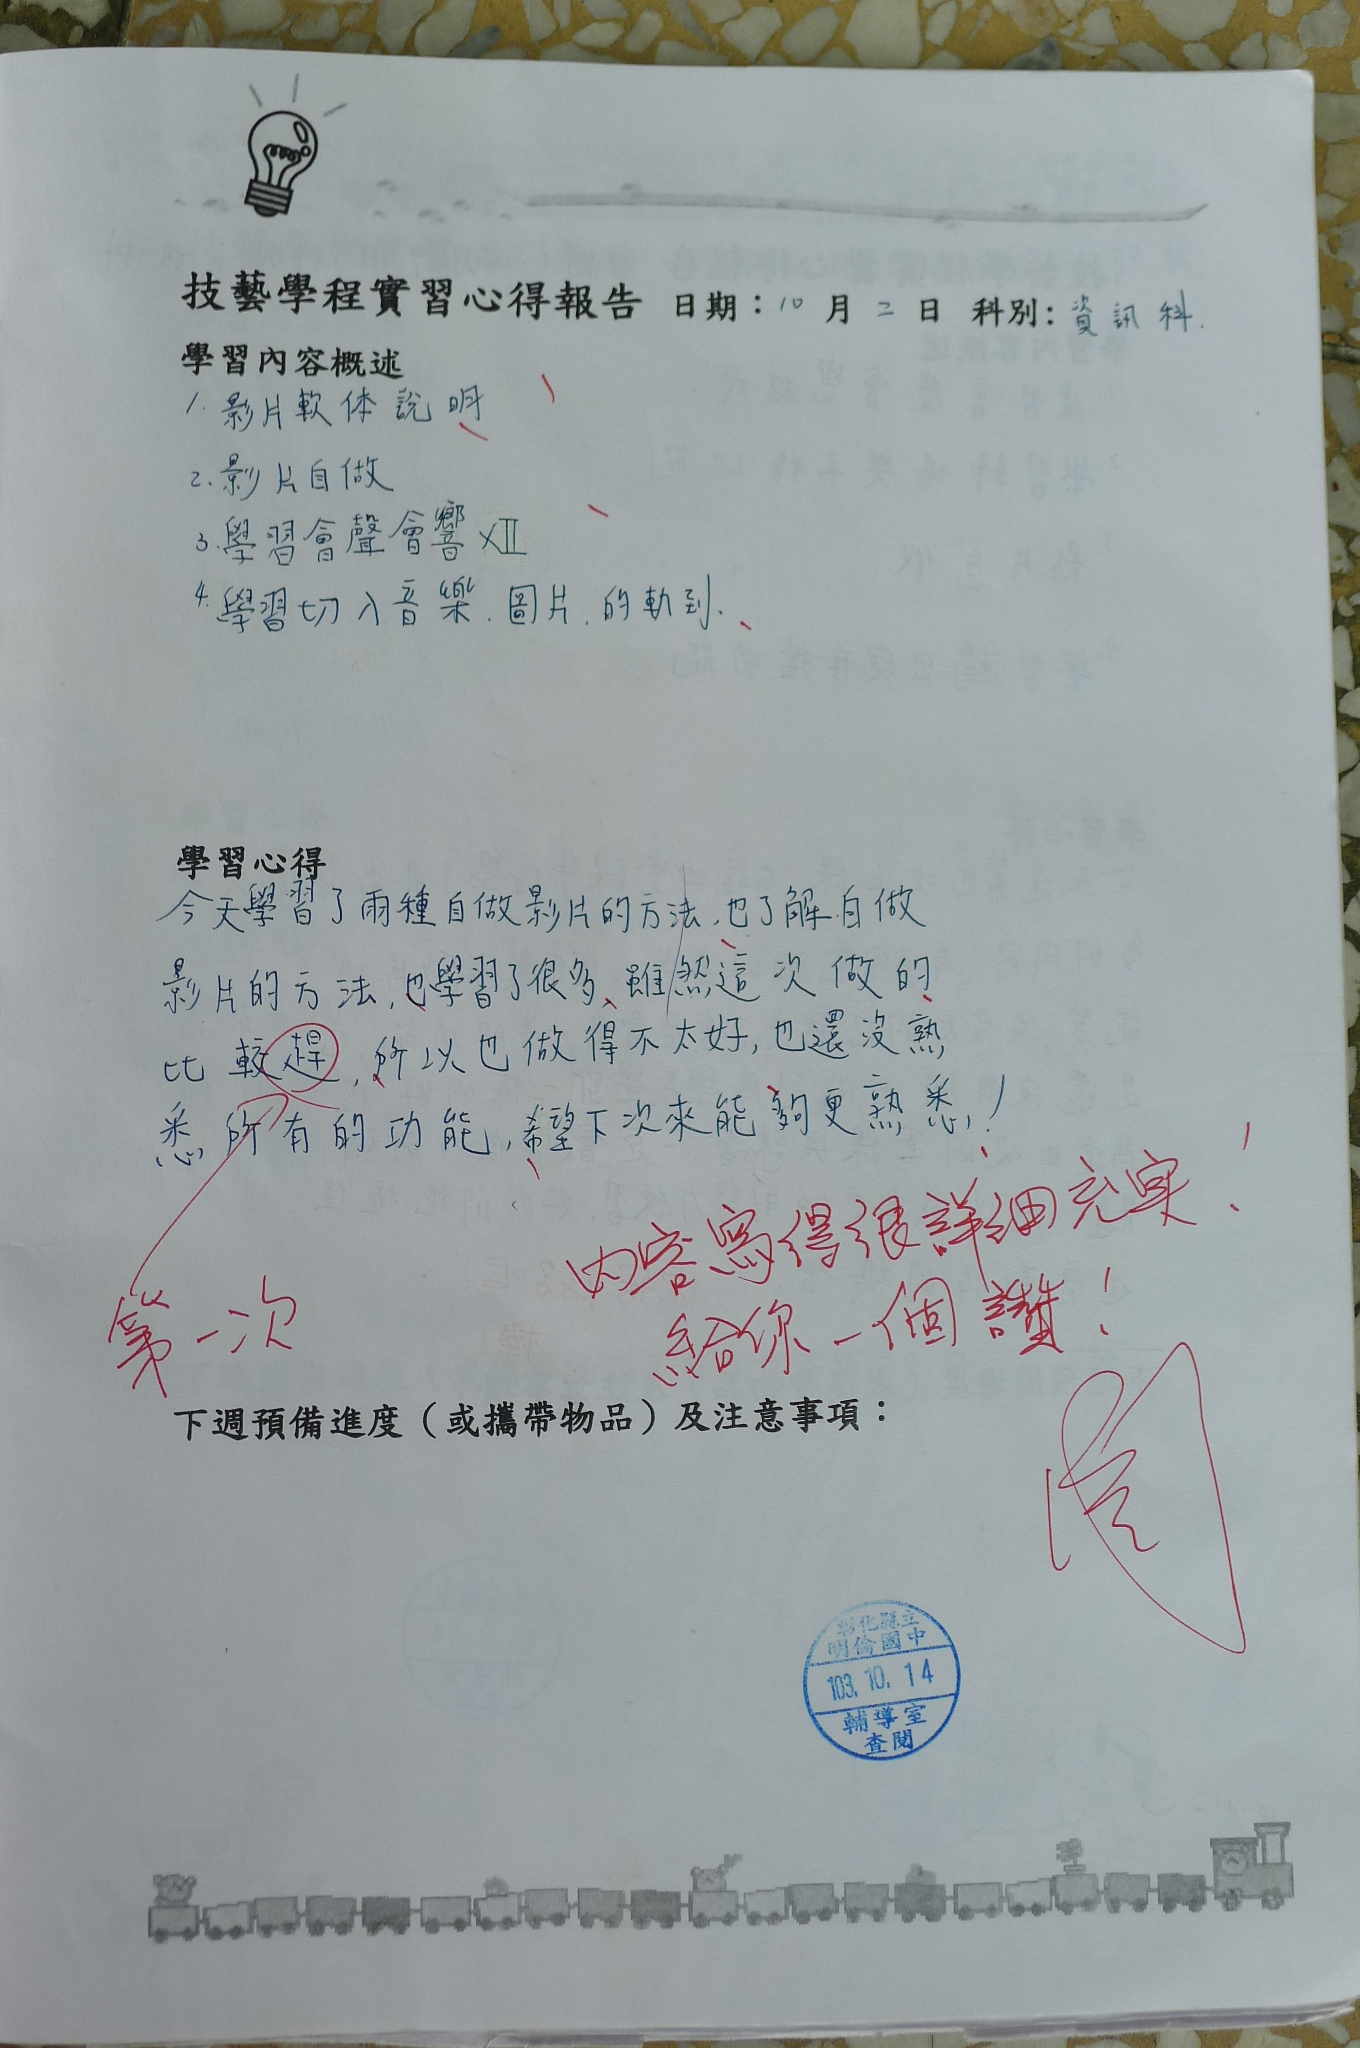 技藝學程實習心得報告 日期：10月2日 科別：資訊科.
學習內容概述
1. 影片軟体說明
2. 影片自做
3. 學習會聲會響XII
4. 學習切入音樂. 圖片. 的軌到.
學習心得
今天學習了兩種自做影片的方法，也了解自做
影片的方法，也學習了很多，雖然這次做的
比較趕，所以也做得不太好，也還沒熟
悉所有的功能，希望下次來能夠更熟悉！
內容寫得很詳細充實！
第一次
給你一個讚！
下週預備進度（或攜帶物品）及注意事項：
彰化縣立
明倫國中
103.10.14
輔導室
查閱